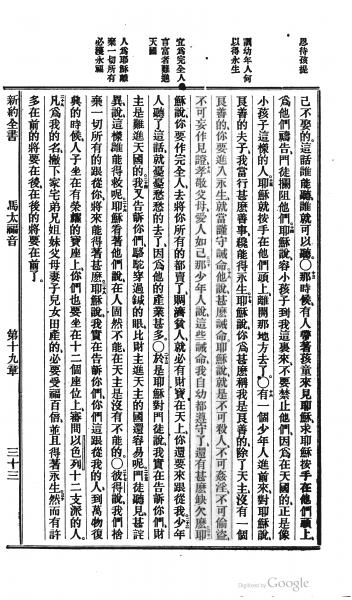 恩待孩提
訓幼年人何
以得永生
宜作完全人
言富者難進
天國
人爲耶穌離
棄一切所有
必獲永福
己不娶的、這話誰能聽、誰就可以聽○那時候、有人帶著孩童來見耶穌、求耶穌按手在他們頭上、
爲他們禱告、門徒攔阻他們、耶穌說、容小孩子到我這裏來、不要禁止他們、因爲在天國的、正是像
小孩子這樣的人、耶穌就按手在他們頭上、離開那地方去了○有一個少年人進前來、對耶穌說、
良善的夫子、我當行甚麽善事、纔能得永生、耶穌說、你爲甚麽稱我是良善的、除了天主、沒有一個
良善的、你要進入永生、就當謹守誡命、說、甚麽誡命、耶穌說、就是不可殺人、不可姦淫、不可偷盜、
不可妄作見證、孝敬父母、愛人如己、那少年人說、這些誡命、我自幼都遵守了、還有甚麽缺欠麽、耶
穌說、你要作完全人、去將你所有的都賣了、賙濟貧人、就必有財寶在天上、你還要來跟從我、少年
人聽了這話、就憂憂愁愁的去了、因爲他的產業甚多○於是耶穌對門徒說、我實在告訴你們、財
主是難進天國的、我又告訴你們、駱駝穿過鍼的眼、比財主進天主的國還容易呢、門徒聽見甚詫
異、說、這樣誰能得救呢、耶穌看著他們說、在人固然不能、在天主是沒有不能的○彼得說、我們捨
棄一切所有的跟從你、將來能得著甚麽、耶穌說、我實在告訴你們、你們這跟從我的人、到萬物復
興的時候、人子坐在有榮耀的寶座上、你們也要坐在十二個座位上、審問以色列十二支派的人、
凡爲我的名、撇下家宅弟兄姐妹父母妻子兒女田產的、必要受福百倍、並且得著永生、然而有許
多在前的將要在後、在後的將要在前了、
新約全書 馬太福音 第十九章 三十三
Digitized by Google